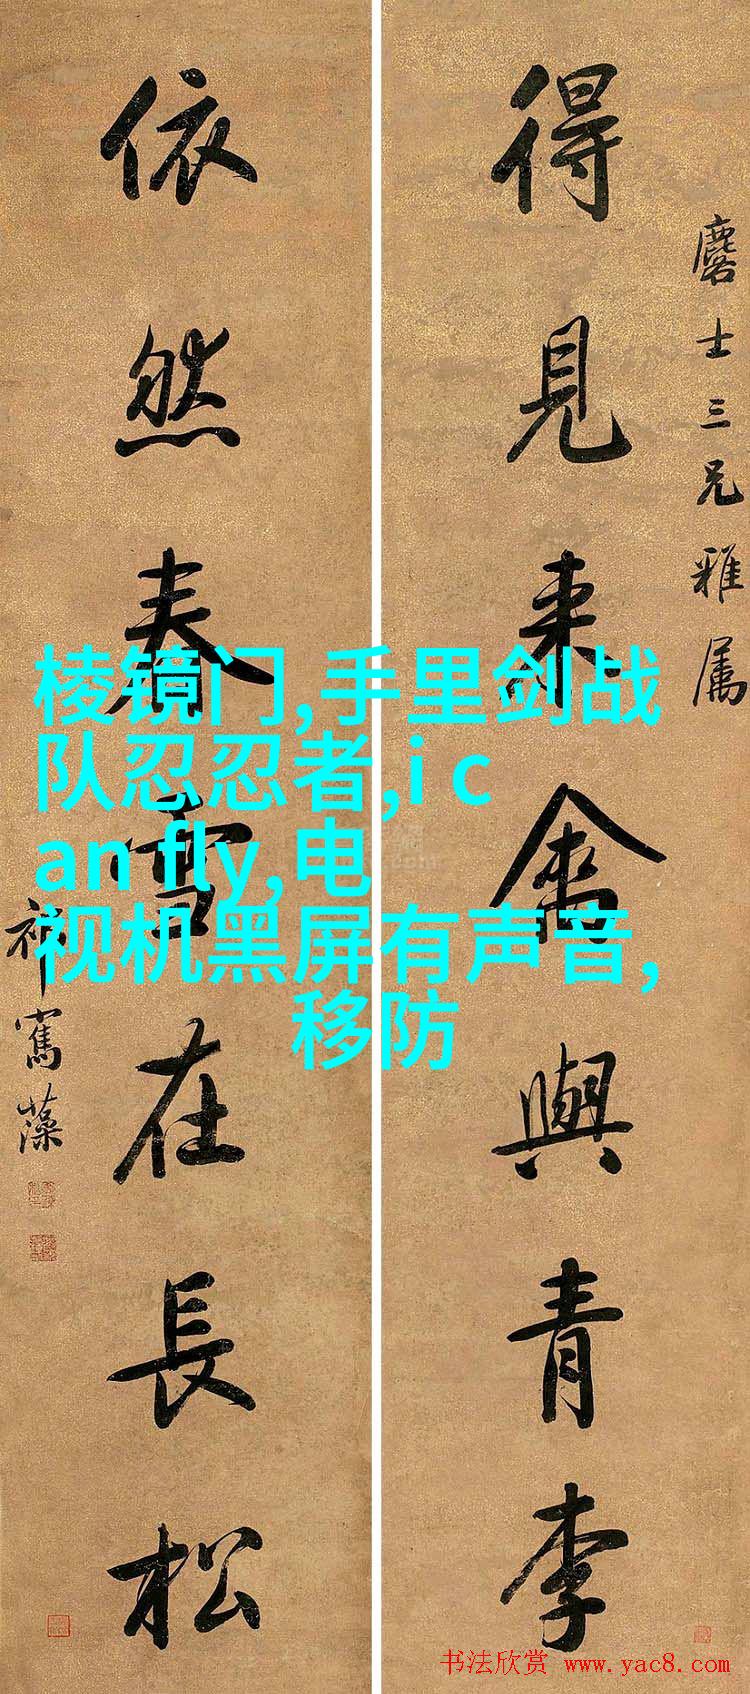 麐士三兄雅属
得見来禽與青李
依然春雪在長松
祁寯藻
棱镜门,手里剑战
队忍忍者,i c
an fly,电
视机黑屏有声音,
移防
书法欣赏 www.yac8.com